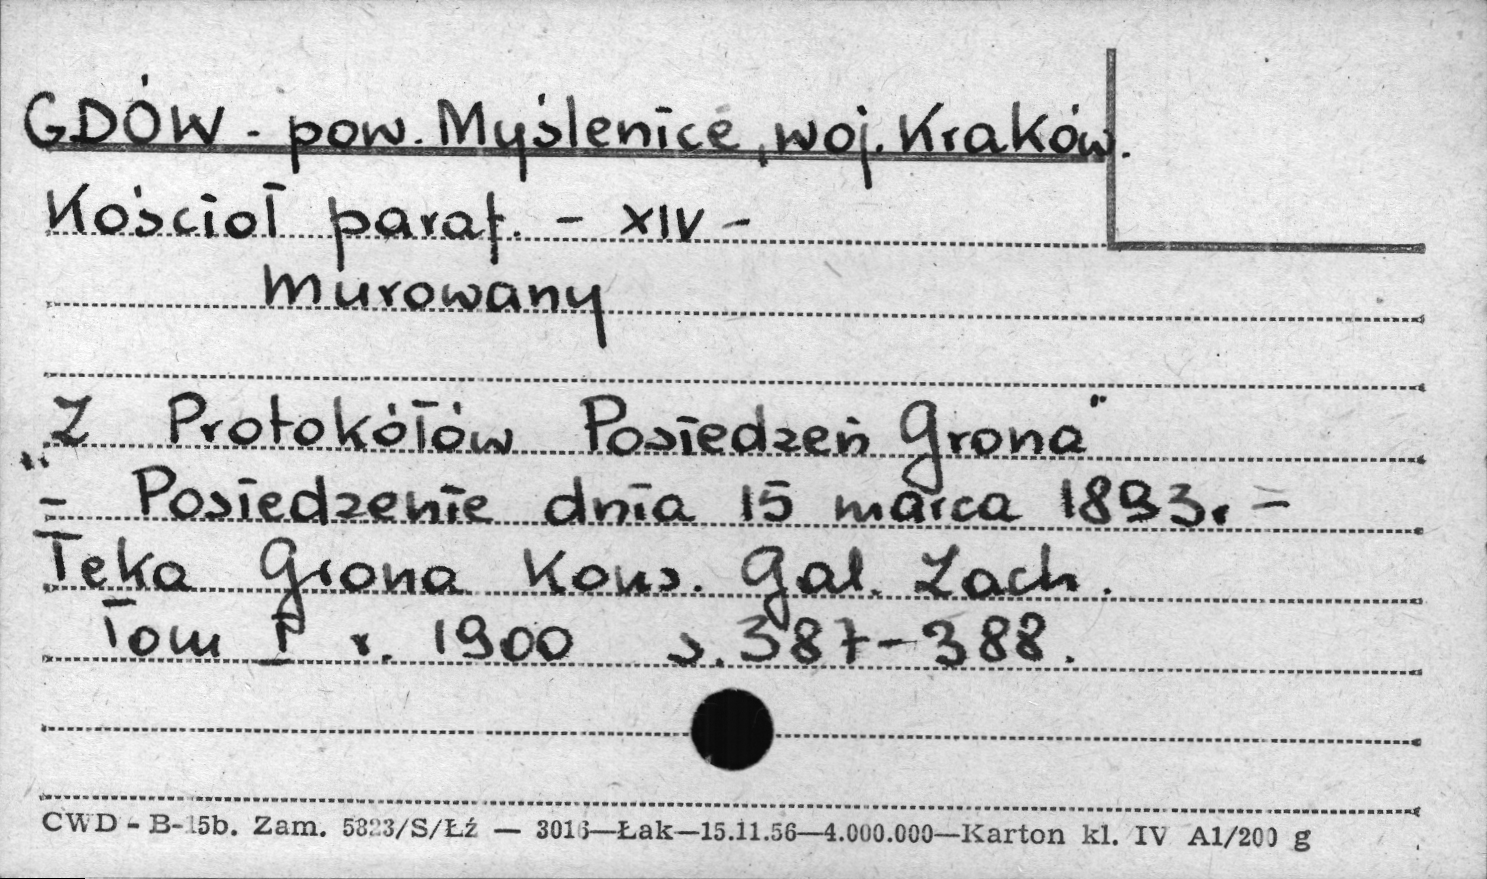 GDÓW - pow. Myślenice, woj. Kraków.
Kościoł paraf. - XIV -
murowany
„Z Protokółów Posiedzeń Grona"
- Posiedzenie dnia 15 marca 1893r. -
Teka Grona Kons. Gal. Zach.
Tom I r. 1900 s. 387-388.
CWD - B-15b. Zam. 5823/S/Łź — 3016—Łak—15.11.56—4.000.000—Karton kl. IV A1/200 g